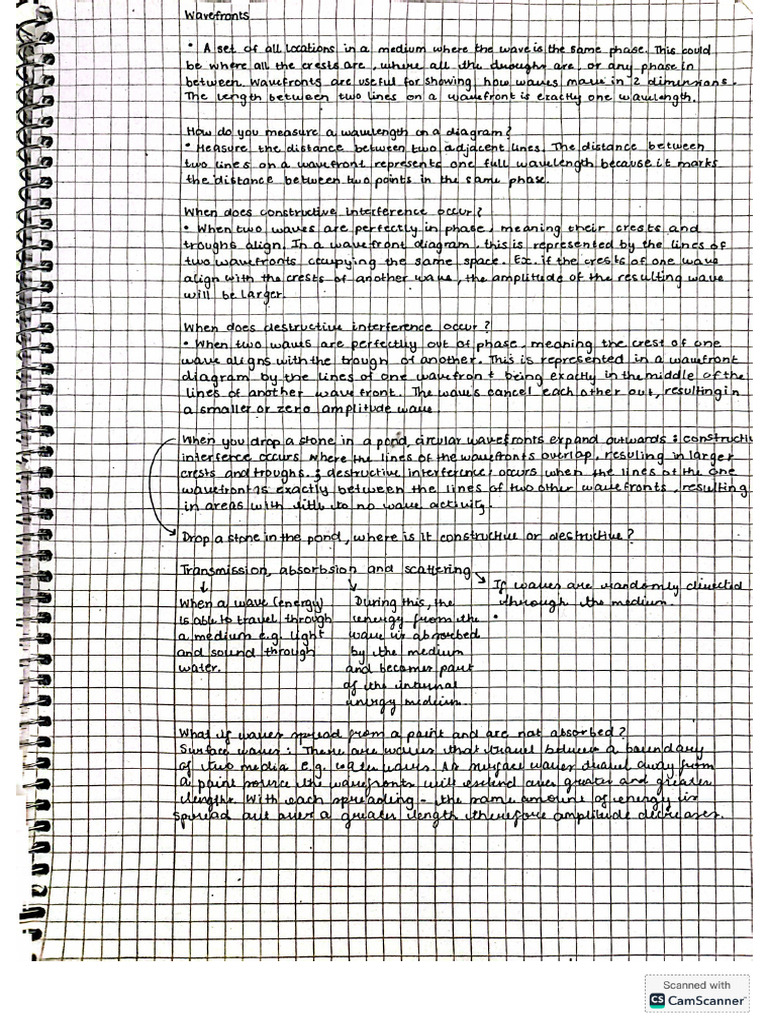 Wavefronts
• A set of all locations in a medium where the wave is the same phase. This could
be where all the crests are, where all the throughs are, or any phase in
between. Wavefronts are useful for showing how waves move in 2 dimensions.
The length between two lines on a wavefront is exactly one wavelength.
How do you measure a wavelength on a diagram?
• Measure the distance between two adjacent lines. The distance between
two lines on a wavefront represents one full wavelength because it marks
the distance between two points in the same phase.
When does constructive interference occur?
• When two waves are perfectly in phase, meaning their crests and
troughs align. In a wavefront diagram, this is represented by the lines of
two wavefronts occupying the same space. Ex. if the crests of one wave
align with the crests of another wave, the amplitude of the resulting wave
will be larger.
When does destructive interference occur?
• When two waves are perfectlly out of phase, meaning the crest of one
wave aligns with the trough of another. This is represented in a wavefront
diagram by the lines of one wavefront being exactly in the middle of the
lines of another wave front. The waves cancel each other out, resulting in
a smaller or zero amplitude wave.
When you drop a stone in a pond, circular wavefronts expand outwards : constructi
interfence occurs where the lines of the wavefronts overlap, resuling in larger
crests and troughs. ; destructive interference occurs when the lines of the one
wavefront is exactly between the lines of two other wavefronts, resulting
in areas with little to no wave activity.
Drop a stone in the pond, where is it constructive or destructive?
Transmission, absorbsion and scattering
If waves are randomly directed
through the medium.
When a wave (energy)
is able to travel through
a medium e.g. light
and sound through
water.
During this, the
energy from the
wave is absorbed
by the medium
and becomes part
of the internal
energy medium.
What if waves spread from a point and are not absorbed?
Surface waves: There are waves that travel between a boundary
of two media e.g. water waves. As surface waves travel away from
a point source the wavefronts will extend over greater and greater
lengths. With each spreading - the same amount of energy is
spread out over a greater length therefore amplitude decreases.
Scanned with
CS CamScanner